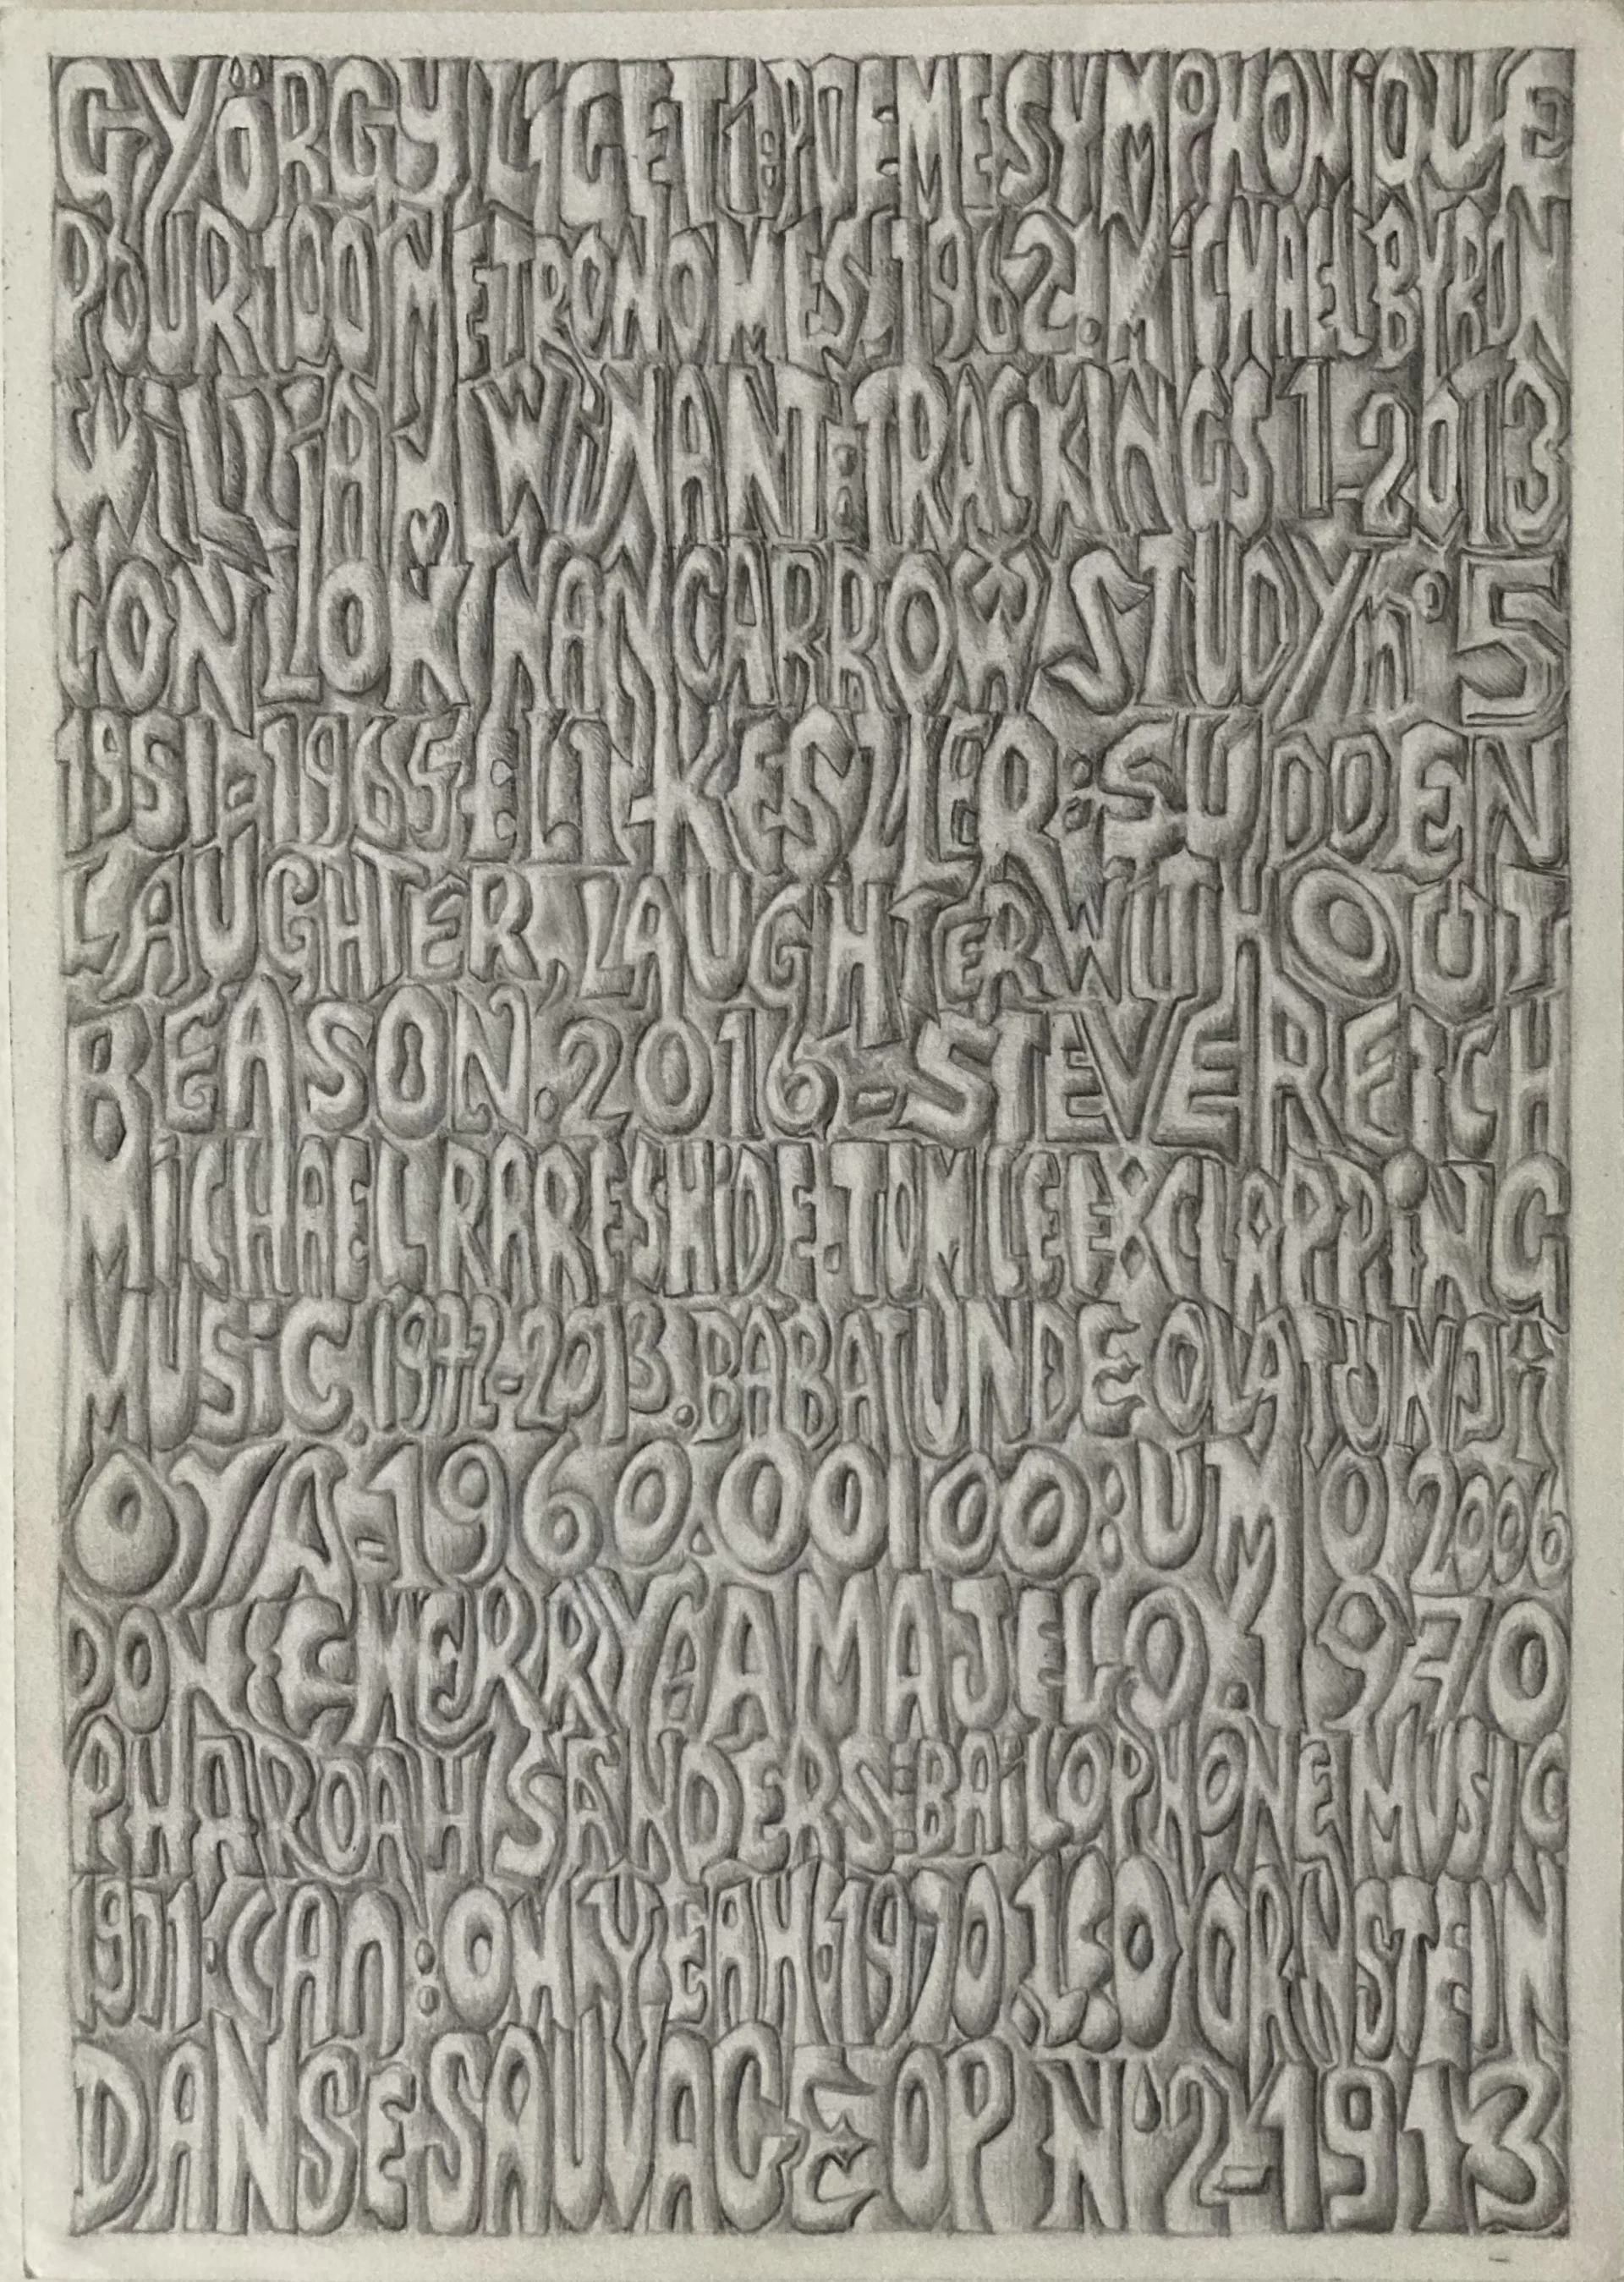 GYÖRGY LIGETI: POEME SYMPHONIQUE
POUR 100 METRONOMES. 1962. MICHAEL BYRON
WILLIAM WINANT: TRACKINGS 1-2013
CONLLOK NANCARROW STUDY nº 5
1951-1965 ELI KESZLER: SUDDEN
LAUGHTER, LAUGHTER WITHOUT
REASON. 2016 - STEVE REICH
MICHAEL RARESHIDE. TOM LEE X CLAPPING
MUSIC. 1972-2013. BABATUNDE OLATUNJI
OYA-1960. OOIOO: UMO 2006
DON CHERRY AAMAJELO. 1970
PHAROAH SANDERS: BAILOPHONE MUSIC
1971. CAN: OH YEAH 1970. LEO ORNSTEIN
DANSE SAUVAGE OP Nº2-1913